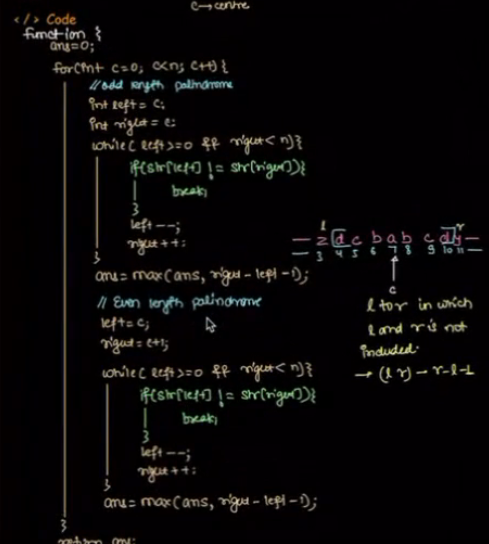 c→centre
</> Code
function {
ans=0;
for(int c=0; c<n; c++){
// odd length palindrome
int left = c;
int right = c;
while( left>=0 && right < n){
if(str[left] != str[right]){
break;
}
left--;
right++;
}
ans = max(ans, right - left - 1);
// Even length palindrome
left = c;
right = c+1;
while( left>=0 && right < n){
if(str[left] != str[right]){
break;
}
left--;
right++;
}
ans = max(ans, right - left - 1);
}
return ans;
l r
— z d c b a b c d y —
— 3 4 5 6 7 8 9 10 11 —
c
l to r in which
l and r is not
included.
→ (l r) → r-l-1